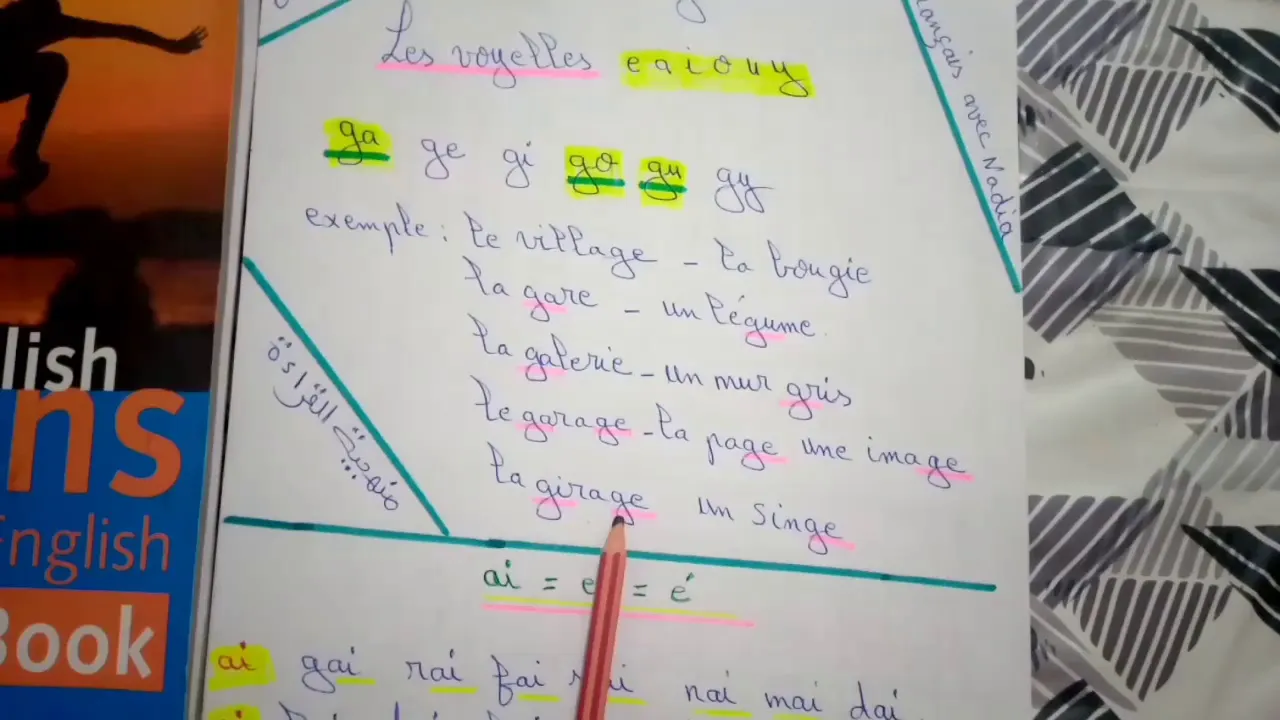 Les voyelles e a i o u y
ga ge gi go gu gy
exemple : le village - la bougie
la gare - un légume.
la galerie - un mur gris
le garage - la page une image
la girage un singe
ai = e = é
ai gai rai fai nai mai dai
français avec Nadia
منهجية القراءة
lish
ns
English
Book